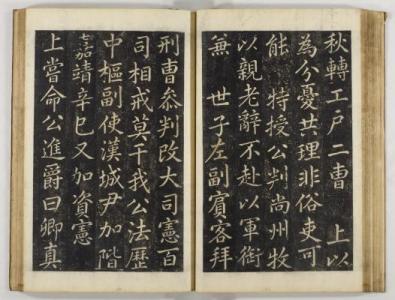 秋轉工戶二曹　上以
為分憂共理非俗吏可
能　特授公判尚州牧
以親老辭不赴以軍銜
兼　世子左副賓客拜
刑曹叅判改大司憲百
司相戒莫干我公法歷
中樞副使漢城尹加階
嘉靖辛巳又加資憲
上嘗命公進爵曰卿真